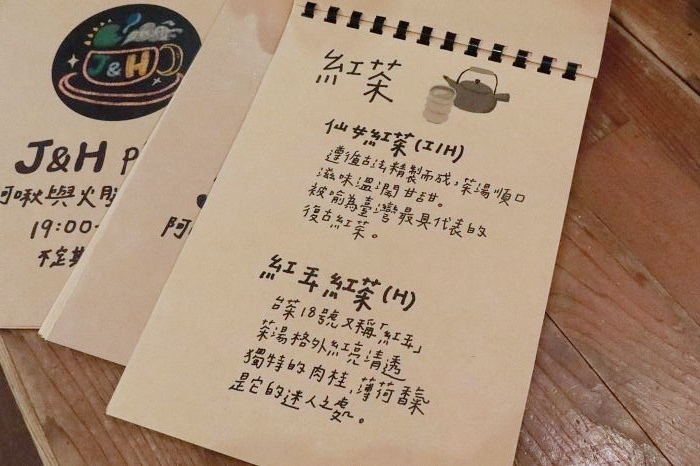 J&H
J&H P
阿啾與火
19:00-
不定期
阿
紅茶
仙女紅茶(I/H)
遵循古法精製而成，茶湯順口
滋味溫潤甘甜。
被喻為臺灣最具代表的
復古紅茶。
紅玉紅茶(H)
台茶18號又稱「紅玉」
茶湯格外紅亮清透
獨特的肉桂，薄荷香氣
是它的迷人之處。